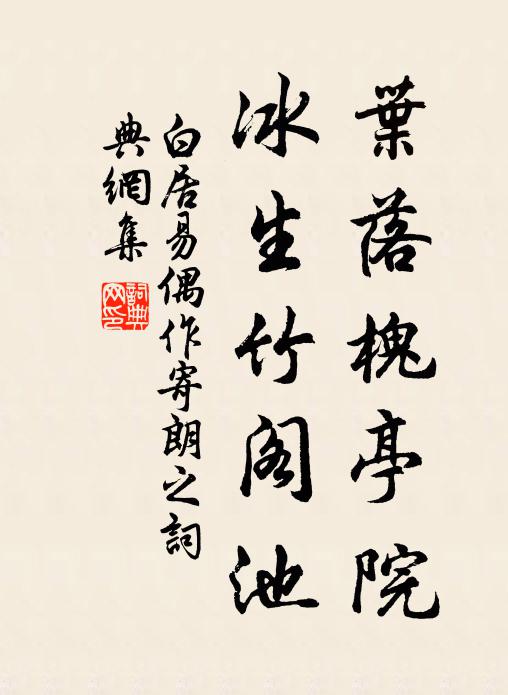 葉落槐亭院
冰生竹阁池
白居易偶作寄朗之詞
典網集
詞典
网印